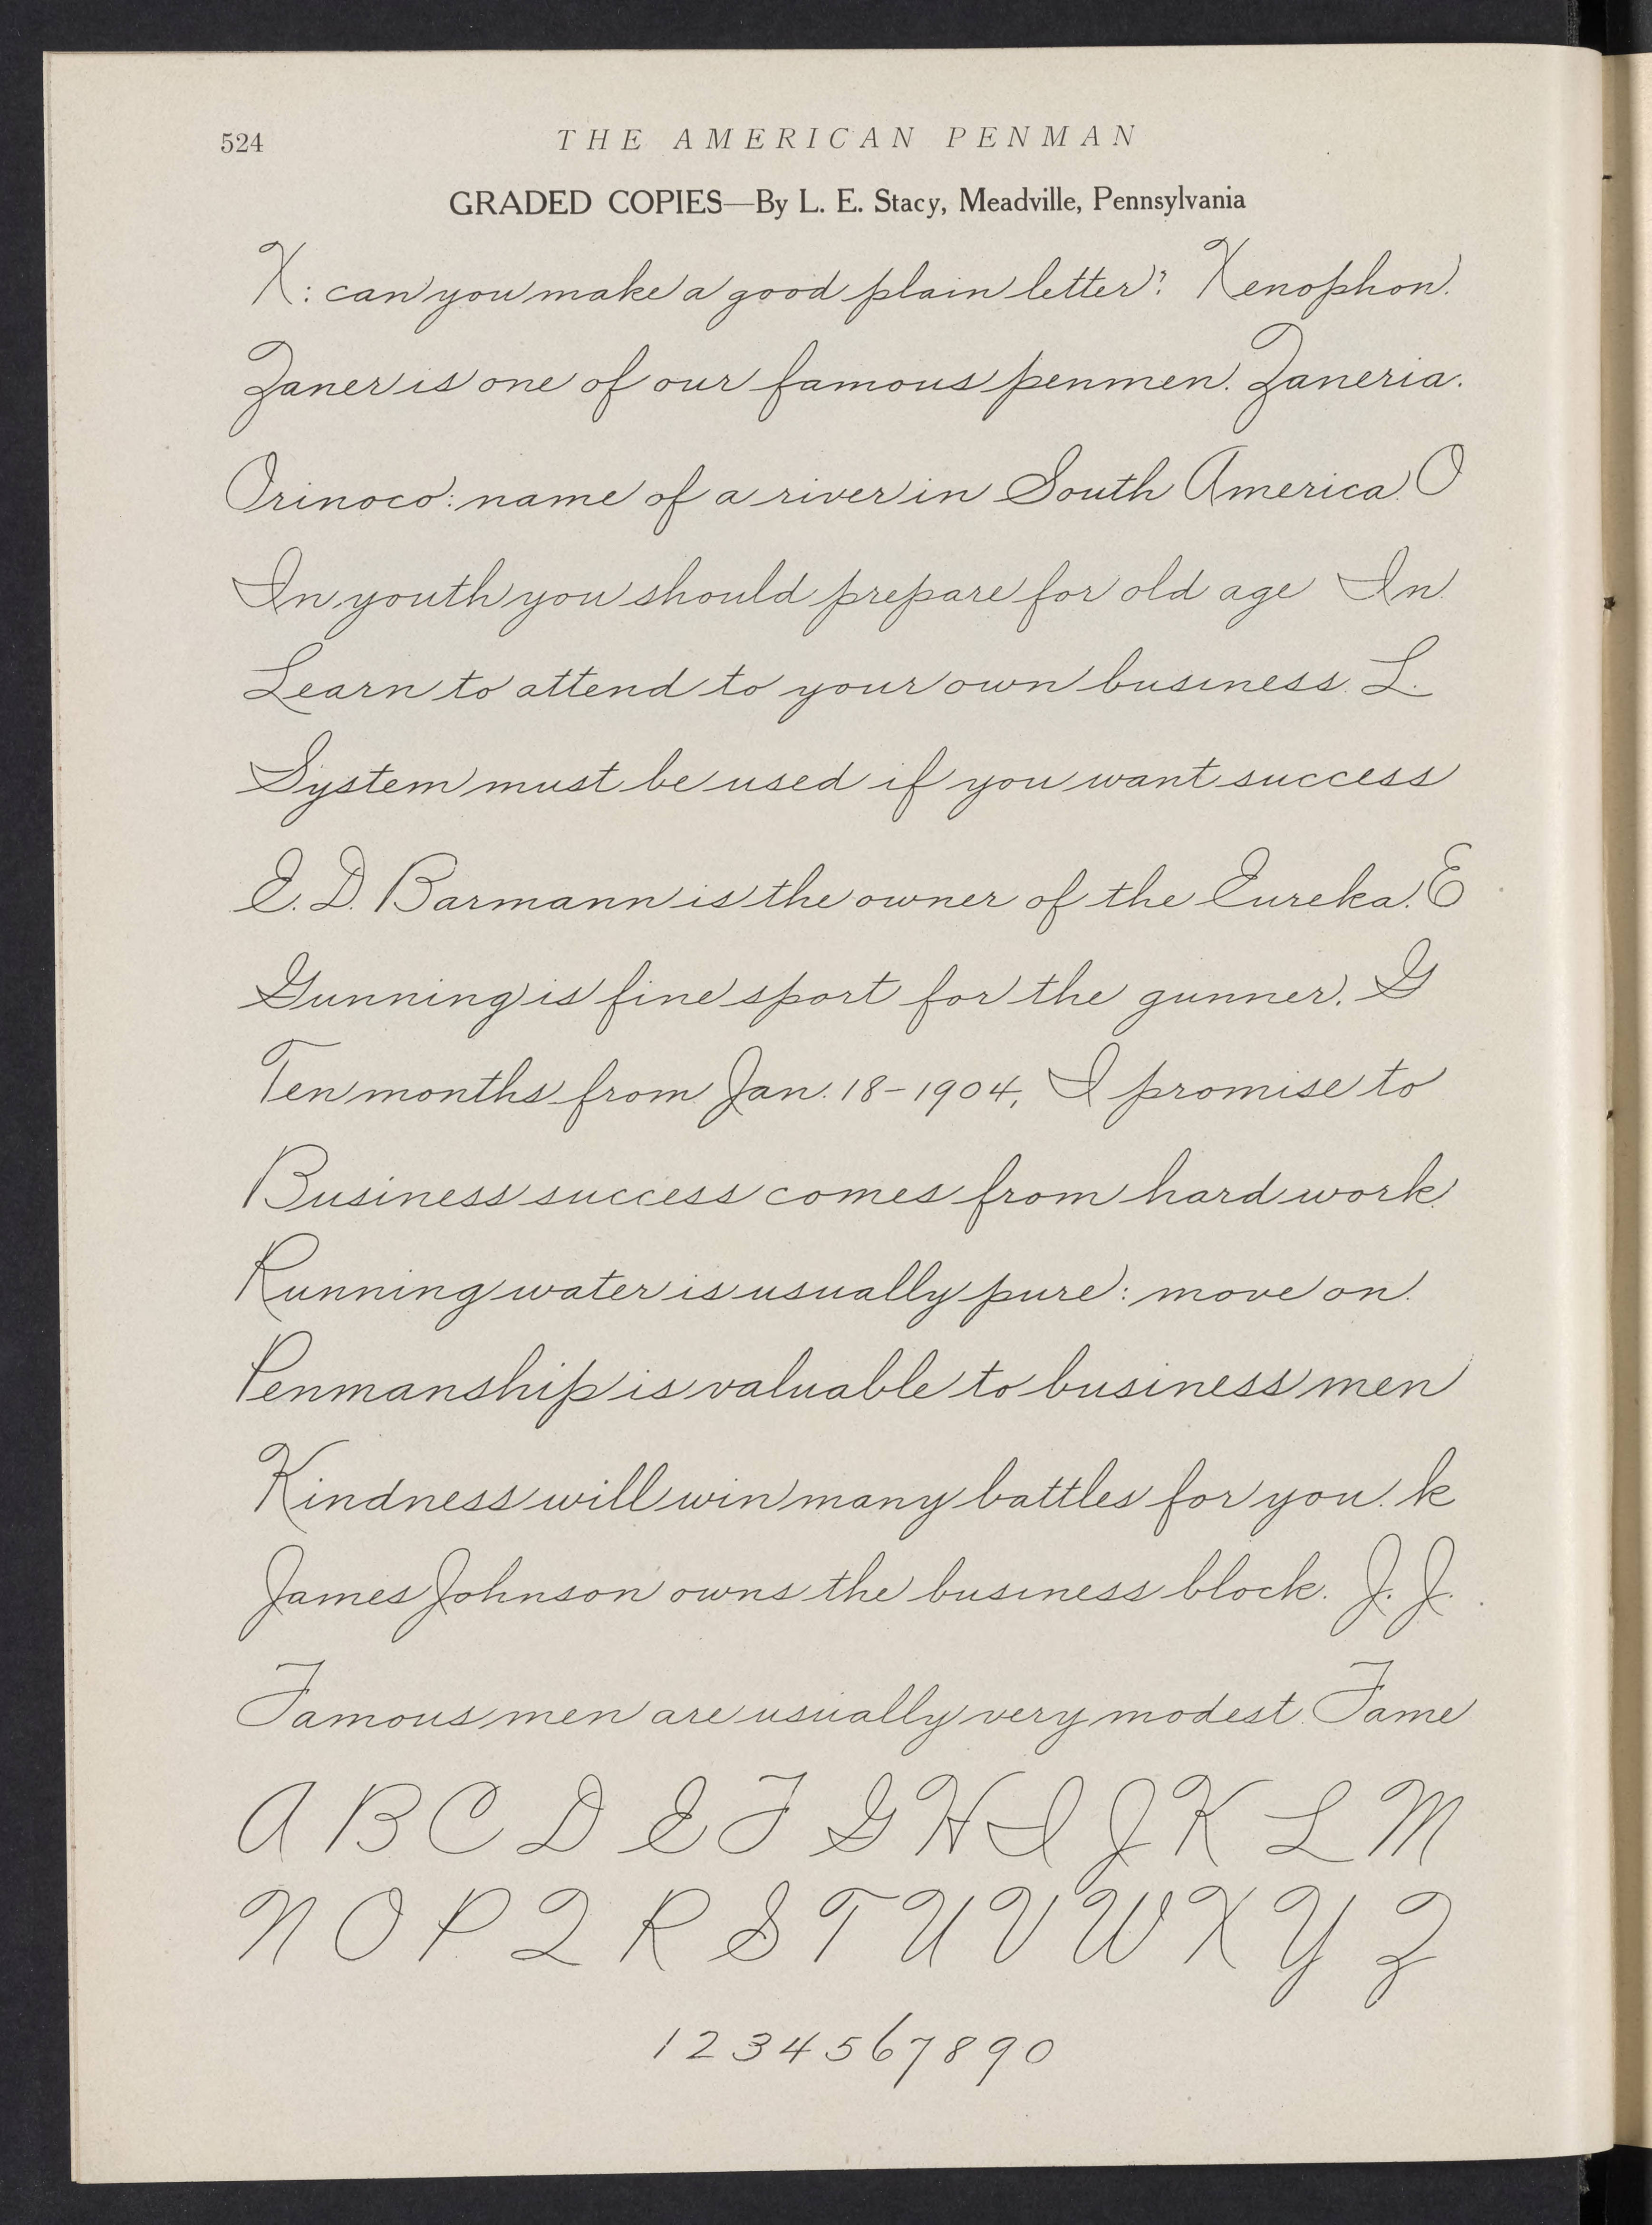 524 THE AMERICAN PENMAN
GRADED COPIES—By L. E. Stacy, Meadville, Pennsylvania
X: can you make a good plain letter? Xenophon.
Zaner is one of our famous penmen. Zaneria.
Orinoco: name of a river in South America. O
In youth you should prepare for old age In.
Learn to attend to your own business. L.
System must be used if you want success
E. D. Barmann is the owner of the Eureka. E
Gunning is fine sport for the gunner. G
Ten months from Jan. 18-1904, I promise to
Business success comes from hard work.
Running water is usually pure: move on.
Penmanship is valuable to business men
Kindness will win many battles for you. k
James Johnson owns the business block. J. J.
Famous men are usually very modest. Fame
A B C D E F G H I J K L M
N O P Q R S T U V W X Y Z
1 2 3 4 5 6 7 8 9 0